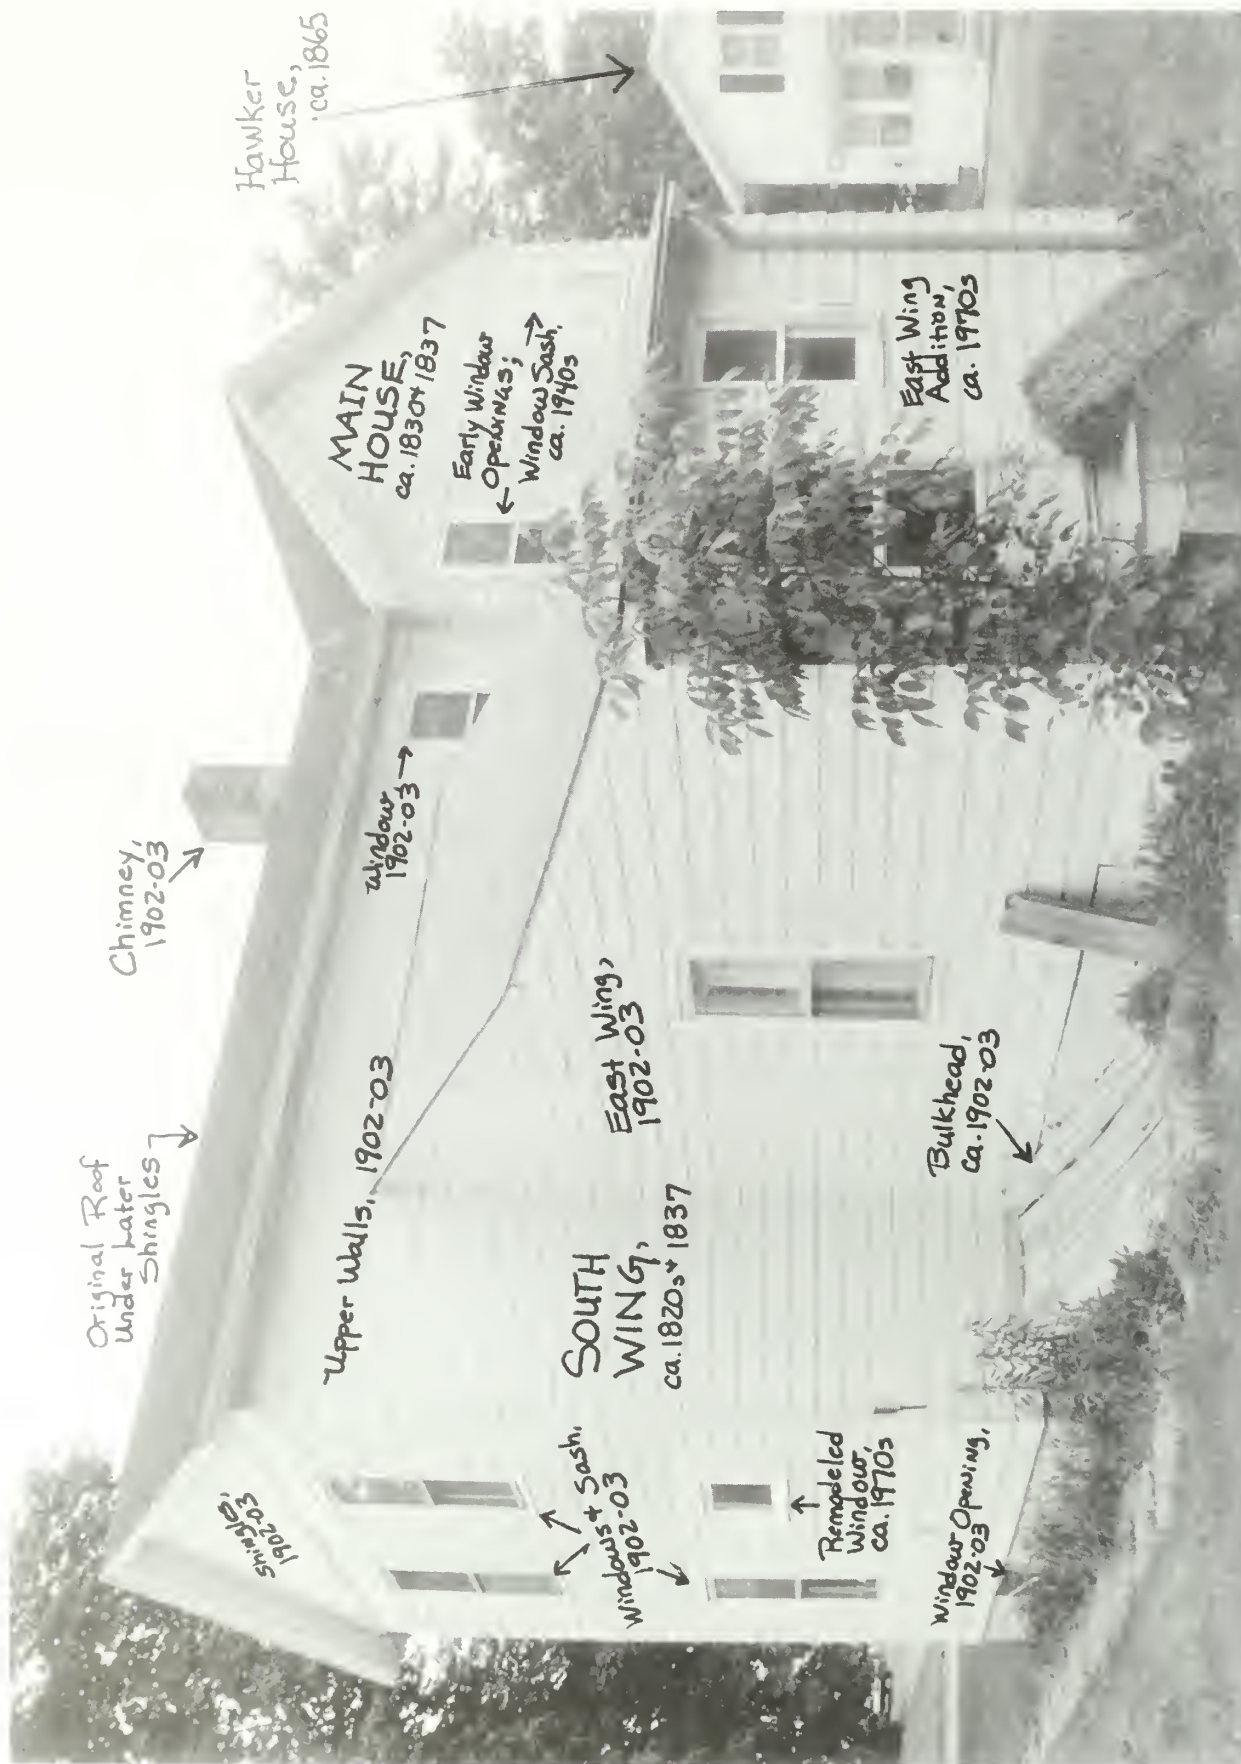 Original Roof
Under Later
Shingles
Chimney,
1902-03
Hawker
House,
ca. 1865
Shingles,
1902-03
Upper Walls, 1902-03
Window
1902-03
MAIN
HOUSE,
ca. 1830+1837
Early Window
Openings;
Window Sash,
ca. 1940s
Windows + Sash,
1902-03
SOUTH
WING,
ca. 1820s+1837
East Wing,
1902-03
East Wing
Addition,
ca. 1970s
Remodeled
Window,
ca. 1970s
Window Opening,
1902-03
Bulkhead,
ca. 1902-03